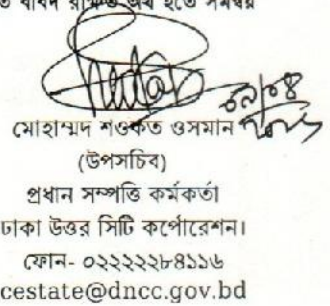 বাবদ রক্ষিত অর্থ হতে সমন্বয়
মোহাম্মদ শওকত ওসমান
(উপসচিব)
প্রধান সম্পত্তি কর্মকর্তা
ঢাকা উত্তর সিটি কর্পোরেশন।
ফোন- ০২২২২২৮৪১১৬
cestate@dncc.gov.bd